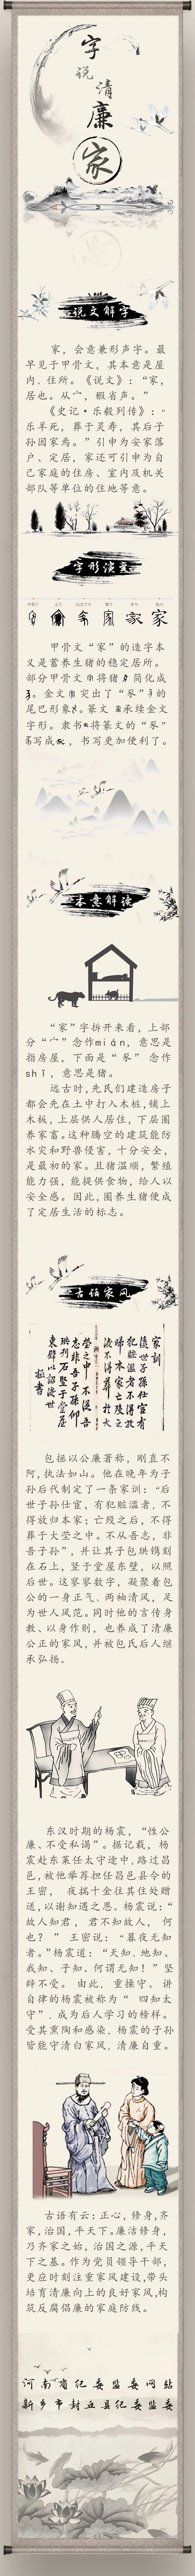 字
说
清
廉
家
说文解字
家，会意兼形声字。最
早见于甲骨文，其本意是屋
内、住所。《说文》：“家，
居也。从宀，豭省声。”
《史记·乐毅列传》：“
乐羊死，葬于灵寿，其后子
孙因家焉。”引申为安家落
户、定居，家还可引申为自
己家庭的住房、室内及机关
部队等单位的住地等意。
字形演变
甲骨文“家”的字本
义是蓄养生猪的稳定居所。
部分甲骨文将猪简化成
。金文突出了“豕”的
尾巴形象。篆文承续金文
字形。隶书将篆文的“豕”
写成，书写更加便利了。
本意解读
“家”字拆开来看，上部
分“宀”念作mián，意思是
指房屋，下面是“豕”念作
shǐ，意思是猪。
远古时，先民们建造房子
都会先在土中打入木桩，铺上
木板，上层供人居住，下层圈
养家畜。这种腾空的建筑能防
水灾和野兽侵害，十分安全，
是最初的家。且猪温顺，繁殖
能力强，能提供食物，给人以
安全感。因此，圈养生猪便成
了定居生活的标志。
古语家风
家训
后世子孙仕宦有
犯赃滥者不得放
归本家亡殁之后
不得葬于大
茔之中不从吾
志非吾子孙
珙刊石竖于堂屋
东壁以诏后世
包拯以公廉著称，刚直不
阿，执法如山。他在晚年为子
孙后代制定了一条家训：“后
世子孙仕宦，有犯赃滥者，不
得放归本家；亡殁之后，不得
葬于大茔之中。不从吾志，非
吾子孙”，并让其子包珙镌刻
在石上，竖于堂屋东壁，以照
后世。这寥寥数字，凝聚着包
公的一身正气、两袖清风，足
为世人风范。同时他的言传身
教、以身作则，也养成了清廉
公正的家风，并被包氏后人继
承弘扬。
东汉时期的杨震，“性公
廉、不受私谒”。据记载，杨
震赴东莱任太守途中，路过昌
邑，被他举荐担任昌邑县令的
王密，夜揣十金往其住处赠
送，以谢知遇之恩，杨震说：“
故人知君，君不知故人，何
也？”王密说：“暮夜无知
者。”杨震道：“天知、地知、
我知、子知。何谓无知！”坚
辞不受。由此，重操守、讲
自律的杨震被称为“四知太
守”，成为后人学习的榜样。
受其熏陶和感染，杨震的子孙
皆能守清白家风，清廉自重。
古语有云：正心，修身，齐
家，治国，平天下。廉洁修身，
乃齐家之始，治国之源，平天
下之基。作为党员领导干部，
更应时刻注重家风建设，带头
培育清廉向上的良好家风，构
筑反腐倡廉的家庭防线。
河南省纪委监委网站
新乡市封丘县纪委监委